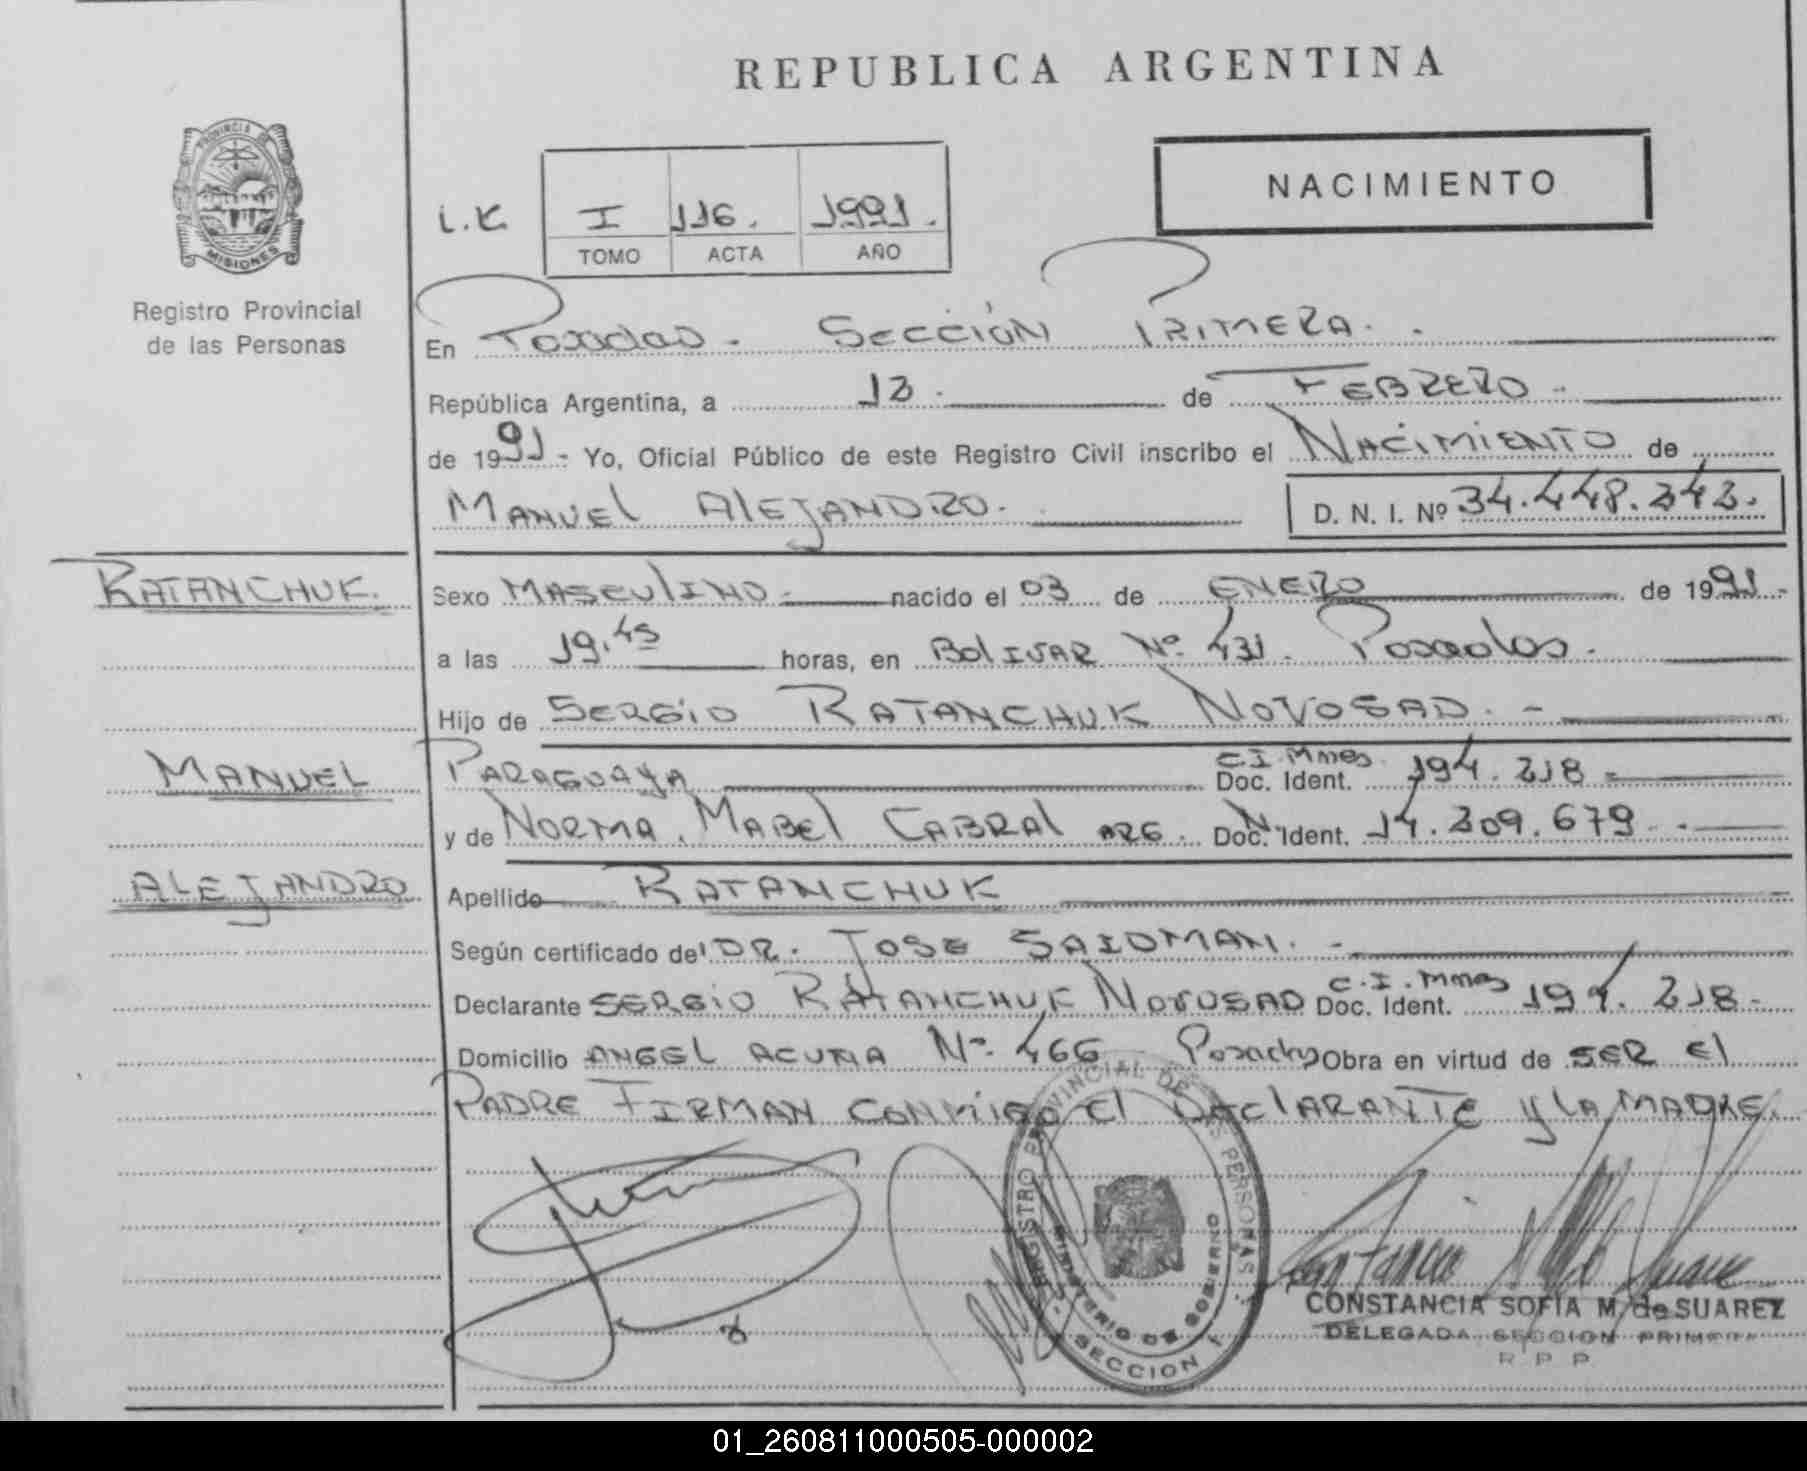 REPUBLICA ARGENTINA
PROVINCIA DE
MISIONES
Registro Provincial
de las Personas
NACIMIENTO
L.K. I 116. 1991.
TOMO ACTA AÑO
En Posadas - Sección Primera.
República Argentina, a 13. de Febrero.
de 1991 - Yo, Oficial Público de este Registro Civil inscribo el Nacimiento de
Manuel Alejandro. D. N. I. Nº 34.448.343.
RATANCHUK. Sexo Masculino - nacido el 03 de Enero de 1991 -
a las 19.45 horas, en Bolivar Nº 431. Posadas.
Hijo de Sergio Ratanchuk Novosad. -
MANUEL Paraguaya C.I. Mnes. Doc. Ident. 194.218 -
y de Norma Mabel Cabral ARG. Doc. N. Ident. 14.209.679 -
ALEJANDRO Apellido RATANCHUK
Según certificado del DR. JOSE SAIDMAN. -
Declarante Sergio Ratanchuk Novosad C.I. Mnes Doc. Ident. 194.218 -
Domicilio Angel Acuña Nº 466 Posadas Obra en virtud de ser el
Padre Firman conmigo el declarante y la madre.
REGISTRO PROVINCIAL DE LAS PERSONAS
MINISTERIO DE GOBIERNO
SECCION 1
CONSTANCIA SOFIA M. de SUAREZ
DELEGADA SECCION PRIMERA
R P P
01_260811000505-000002